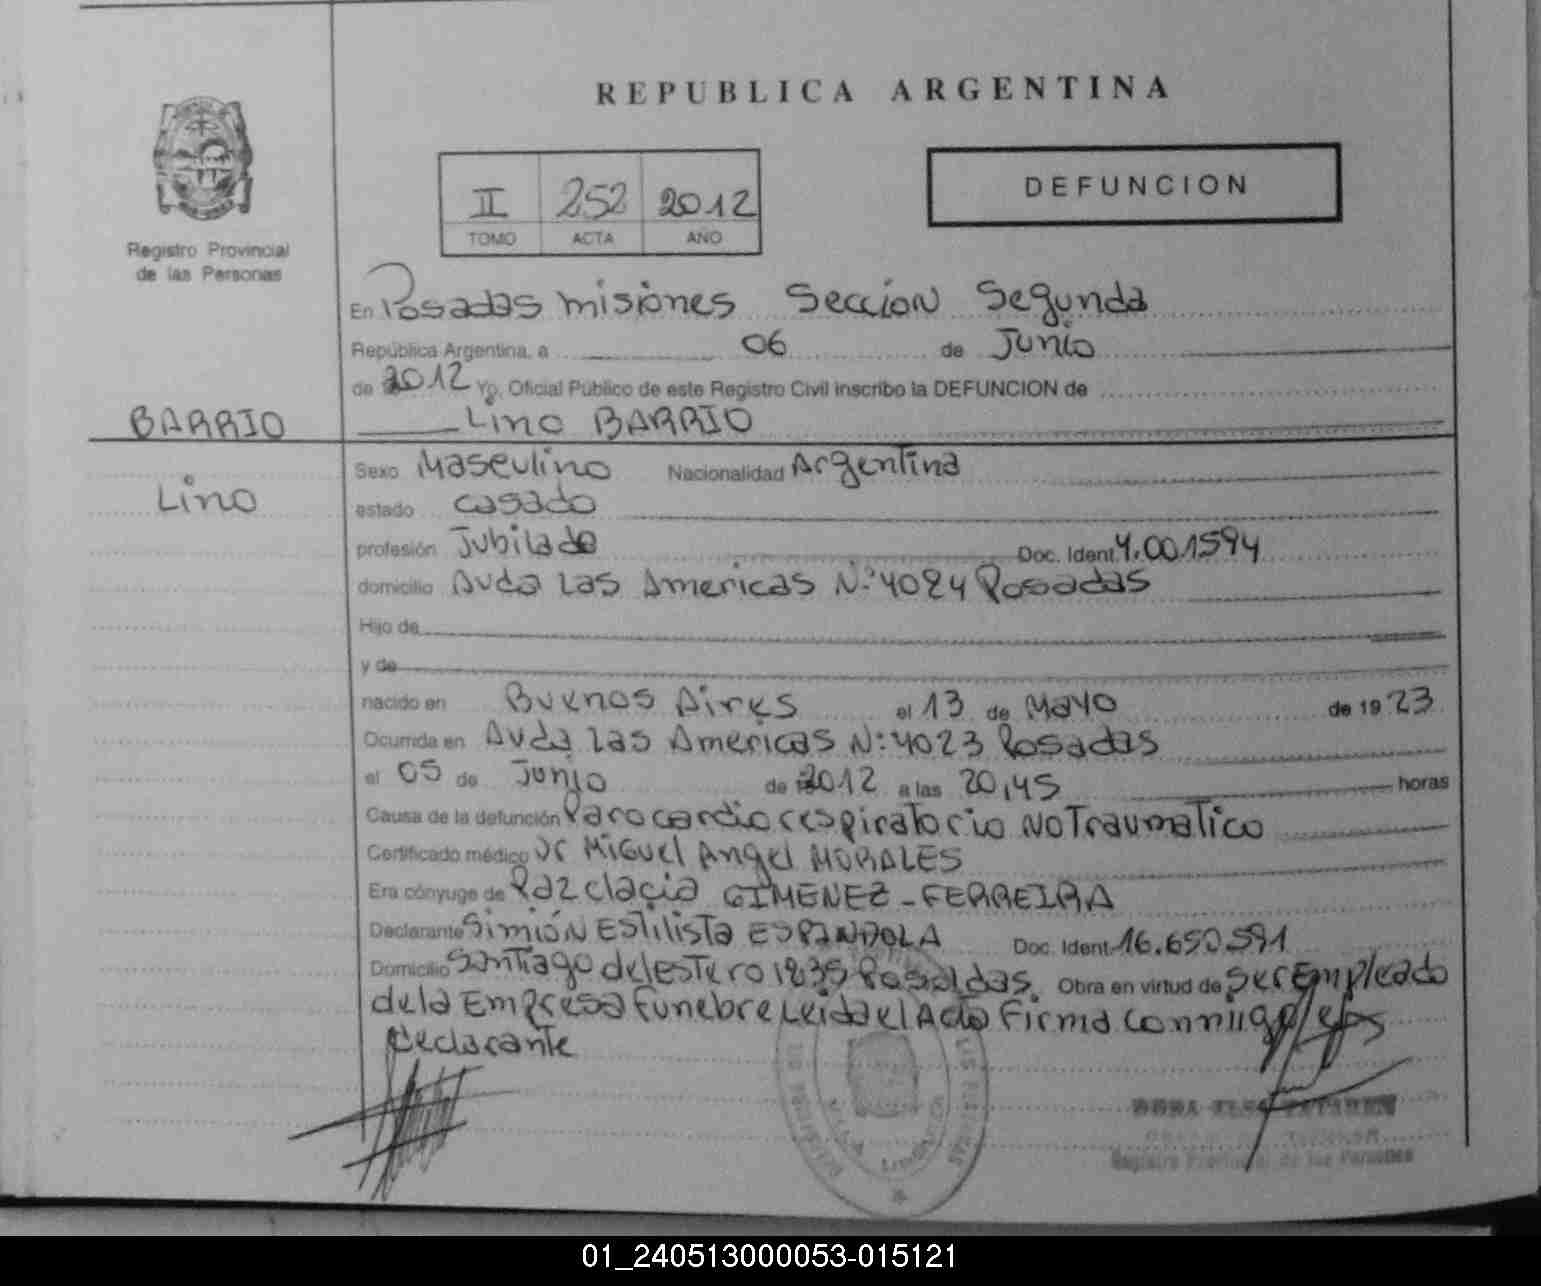 REPUBLICA ARGENTINA
Registro Provincial
de las Personas
II 252 2012
TOMO ACTA AÑO
DEFUNCION
En Posadas Misiones Seccion Segunda
República Argentina, a 06 de Junio
de 2012 Yo, Oficial Público de este Registro Civil inscribo la DEFUNCION de
BARRIO
Lino BARRIO
Lino
Sexo Masculino Nacionalidad Argentina
estado casado
profesión Jubilado Doc. Ident. 4.001594
domicilio Avda Las Americas Nº 4024 Posadas
Hijo de
y de
nacido en Buenos Aires el 13 de Mayo de 1923
Ocurrida en Avda Las Americas N: 4023 Posadas
el 05 de Junio de 2012 a las 20,45 horas
Causa de la defunción Paro cardio respiratorio No Traumatico
Certificado médico Dr Miguel Angel MORALES
Era cónyuge de Paz GIMENEZ - FERREIRA
Declarante Simión Estilista ESPINDOLA Doc. Ident. 16.650.591
Domicilio Santiago del Estero 1835 Posadas. Obra en virtud de ser Empleado
de la Empresa Funebre Leida el Acta Firma conmiigo el
declarante
Registro Provincial de las Personas
01_240513000053-015121